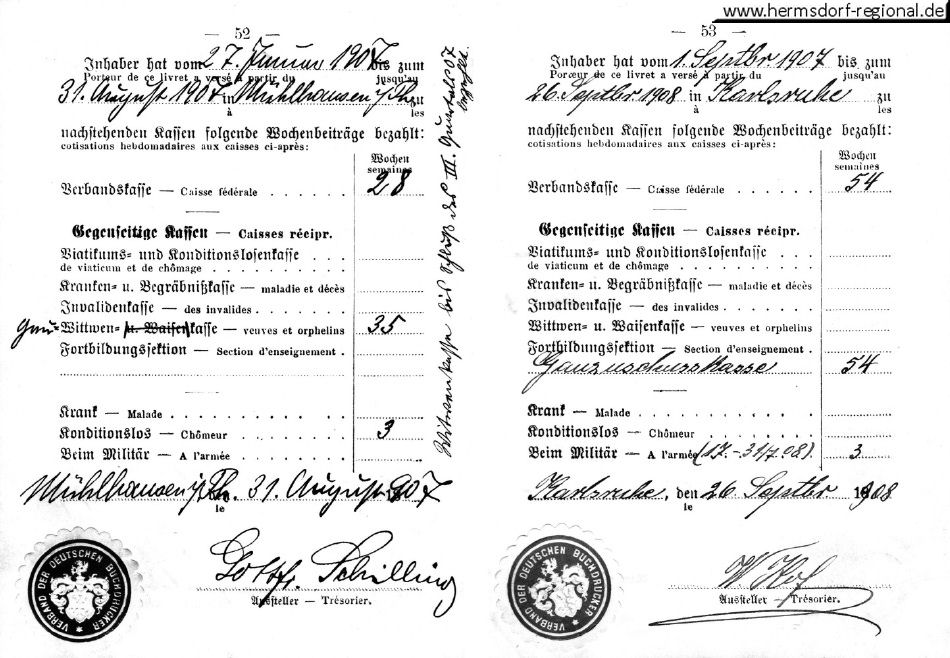 www.hermsdorf-regional.de
— 52 —
Inhaber hat vom 27. Januar 1907 bis zum
Porteur de ce livret a versé à partir du jusqu'au
31. August 1907 in Mühlhausen i/Th. zu
à les
nachstehenden Kassen folgende Wochenbeiträge bezahlt:
cotisations hebdomadaires aux caisses ci-après:
Wochen
semaines
Verbandskasse — Caisse fédérale . . . . . . 28
Gegenseitige Kassen — Caisses récipr.
Viatikums- und Konditionslosenkasse . . .
de viaticum et de chômage . . . . . . . . .
Kranken- u. Begräbnißkasse — maladie et décès
Invalidenkasse — des invalides . . . . . .
Gau- Wittwen- u. Waisenkasse — veuves et orphelins 35
Fortbildungssektion — Section d'enseignement .
Krank — Malade . . . . . . . . . . .
Konditionslos — Chômeur . . . . . . . 3
Beim Militär — A l'armée . . . . . . .
Mühlhausen i/Th. 31. August 1907
le
Gotthf. Schilling
Aussteller — Trésorier.
VERBAND DER DEUTSCHEN BUCHDRUCKER
Witwenkasse bis Schluß des III. Quartals 07
bezahlt.
— 53 —
Inhaber hat vom 1. Septbr 1907 bis zum
Porteur de ce livret a versé à partir du jusqu'au
26. Septbr. 1908 in Karlsruhe zu
à les
nachstehenden Kassen folgende Wochenbeiträge bezahlt:
cotisations hebdomadaires aux caisses ci-après:
Wochen
semaines
Verbandskasse — Caisse fédérale . . . . . . 54
Gegenseitige Kassen — Caisses récipr.
Viatikums- und Konditionslosenkasse . . .
de viaticum et de chômage . . . . . . . . .
Kranken- u. Begräbnißkasse — maladie et décès
Invalidenkasse — des invalides . . . . . .
Wittwen- u. Waisenkasse — veuves et orphelins
Fortbildungssektion — Section d'enseignement .
Gauzuschusskasse 54
Krank — Malade . . . . . . . . . . .
Konditionslos — Chômeur . . . . . . .
Beim Militär — A l'armée (17.-31/7.08). 3
Karlsruhe, den 26. Septbr. 1908
le
Aussteller — Trésorier.
VERBAND DER DEUTSCHEN BUCHDRUCKER